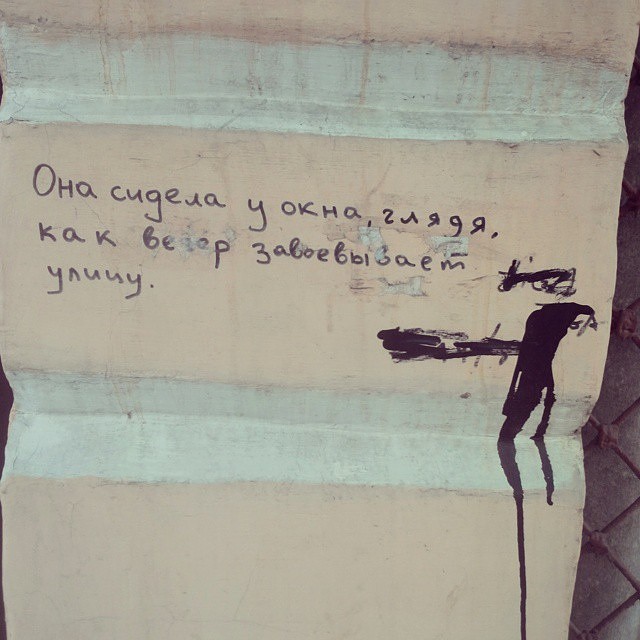 Она сидела у окна, глядя,
как вечер завоевывает
улицу.